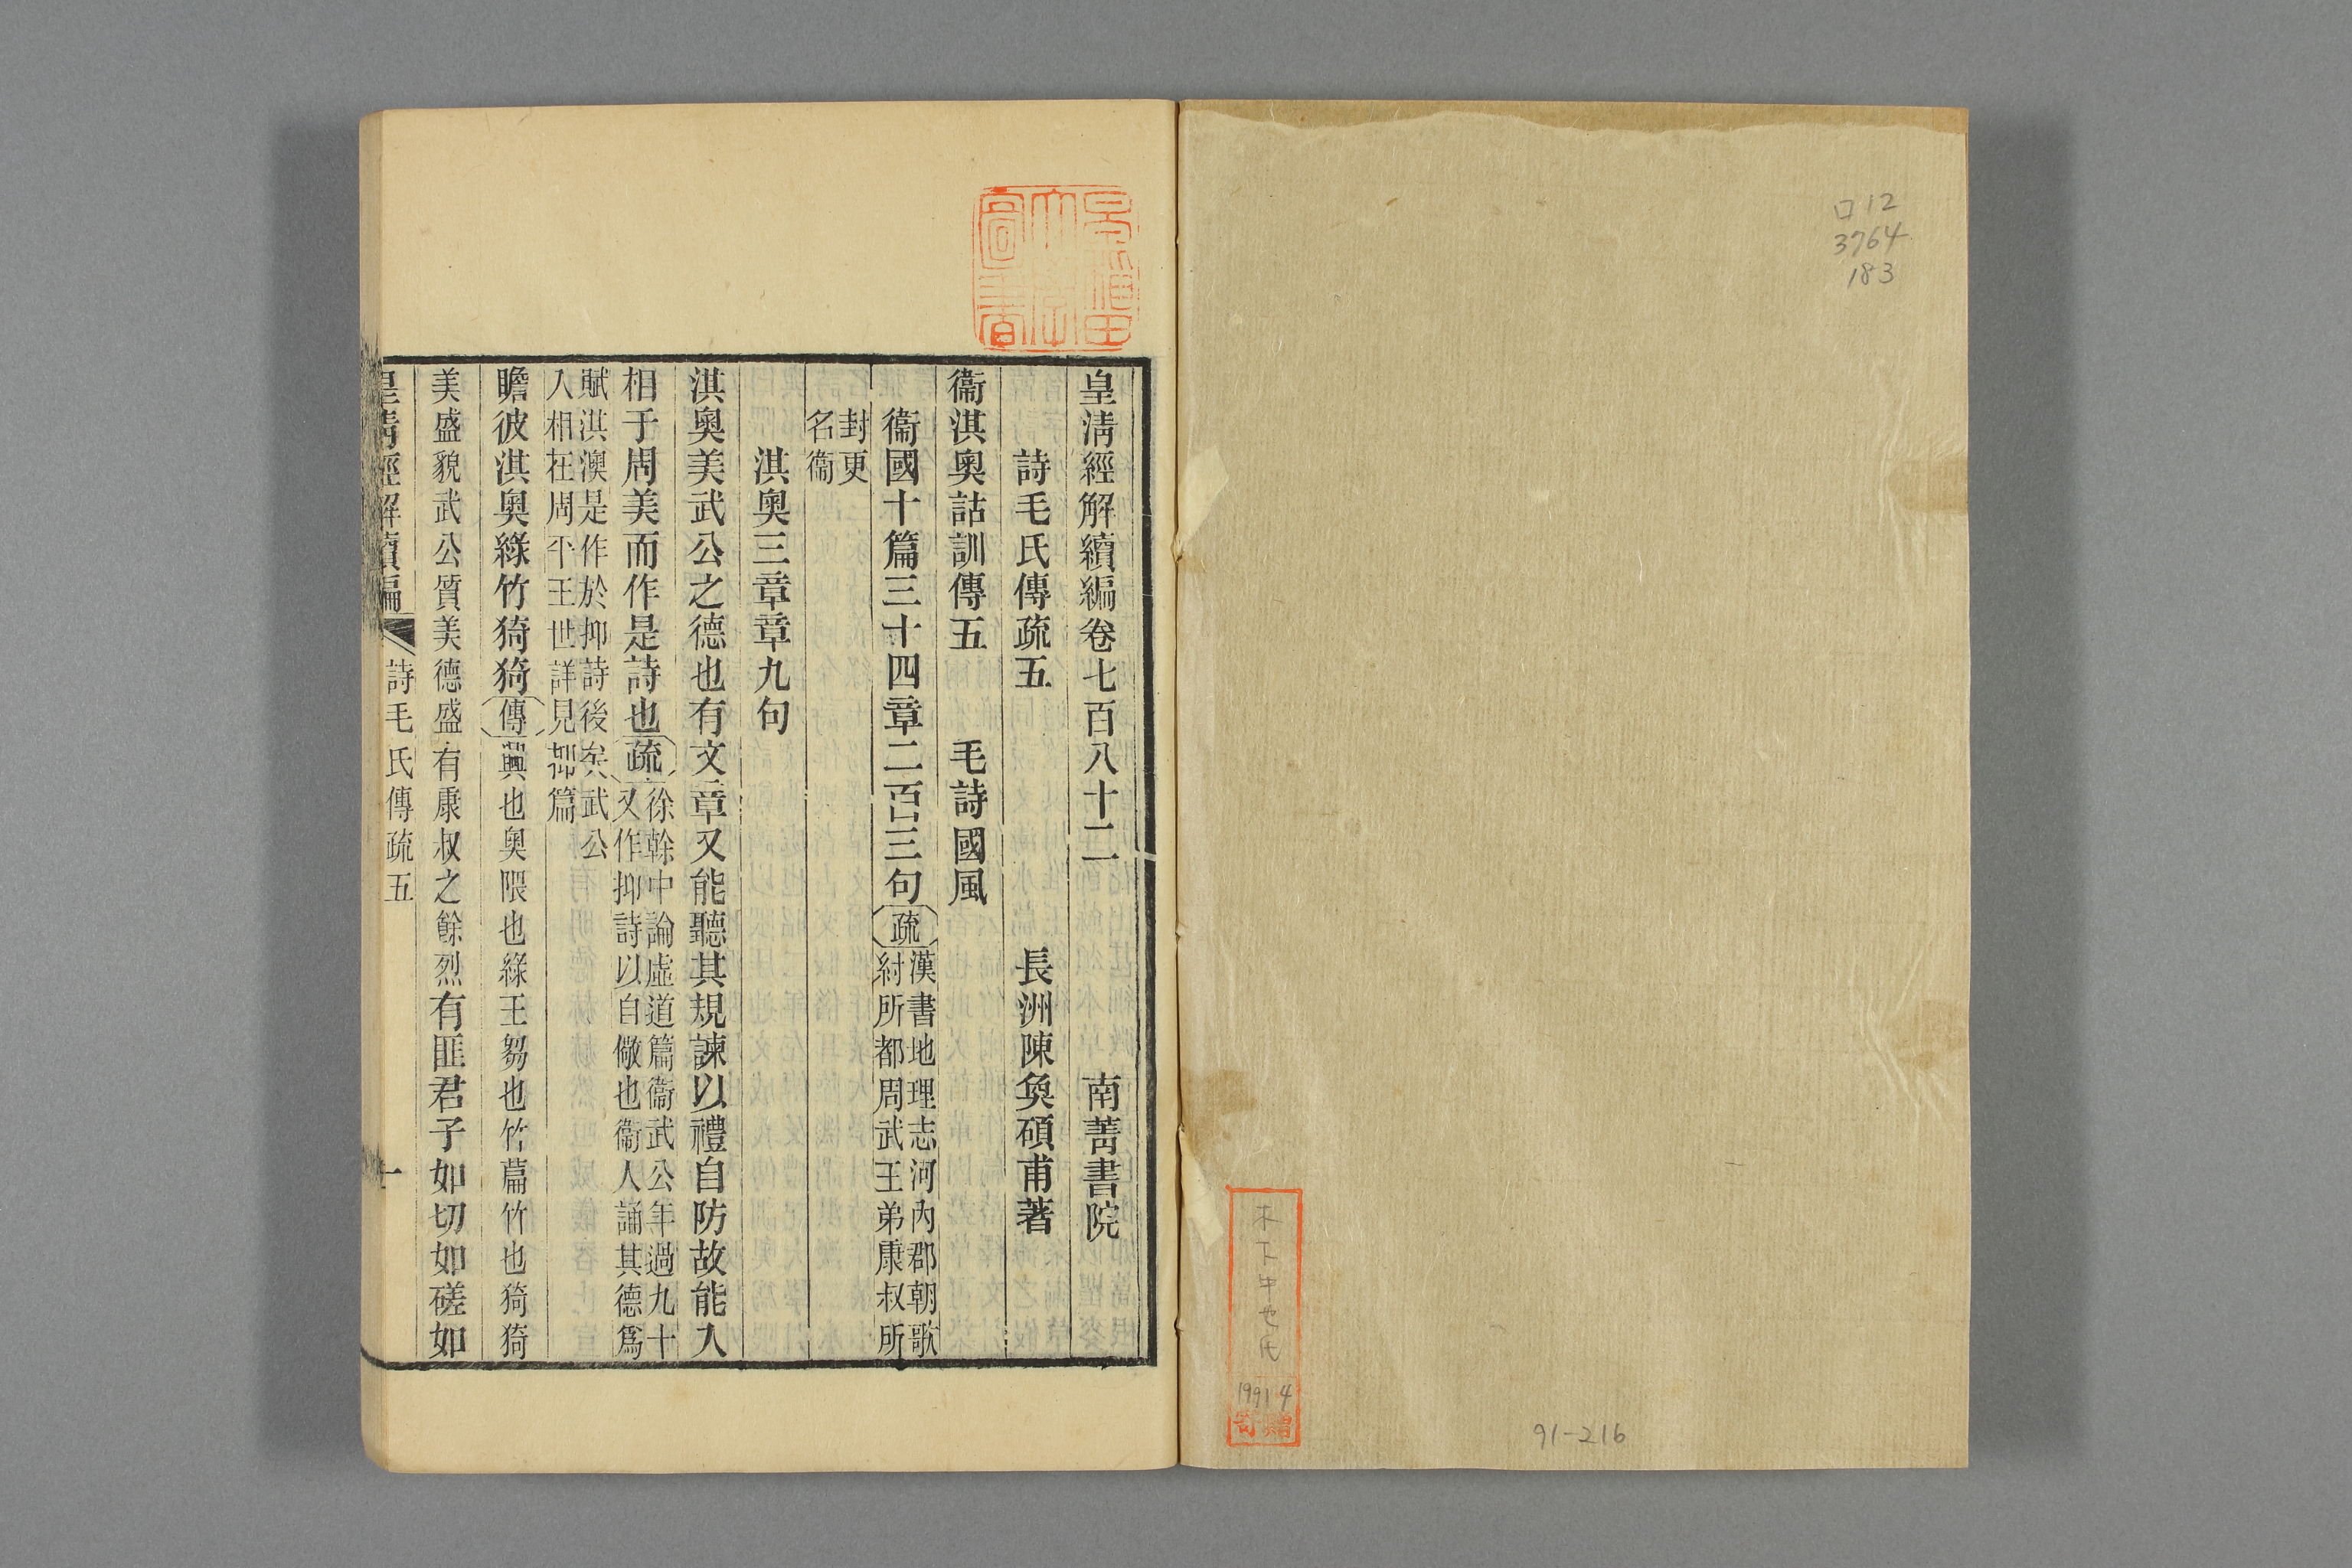 口12
3764
183
木下牛也氏
1991 4
寄贈
91-216
早稲田
大學
圖書
皇清經解續編卷七百八十二 南菁書院
詩毛氏傳疏五 長洲陳奐碩甫著
衞淇奥詁訓傳五 毛詩國風
衞國十篇三十四章二百三句疏漢書地理志河內郡朝歌
紂所都周武王弟康叔所
封更
名衞
淇奥三章章九句
淇奥美武公之德也有文章又能聽其規諫以禮自防故能入
相于周美而作是詩也疏徐幹中論虛道篇衞武公年過九十
又作抑詩以自儆也衞人誦其德爲
賦淇澳是作於抑詩後矣武公
入相在周平王世詳見抑篇
瞻彼淇奥綠竹猗猗傳興也奥隈也綠王芻也竹萹竹也猗猗
美盛貌武公質美德盛有康叔之餘烈有匪君子如切如磋如
皇清經解續編 詩毛氏傳疏五 一